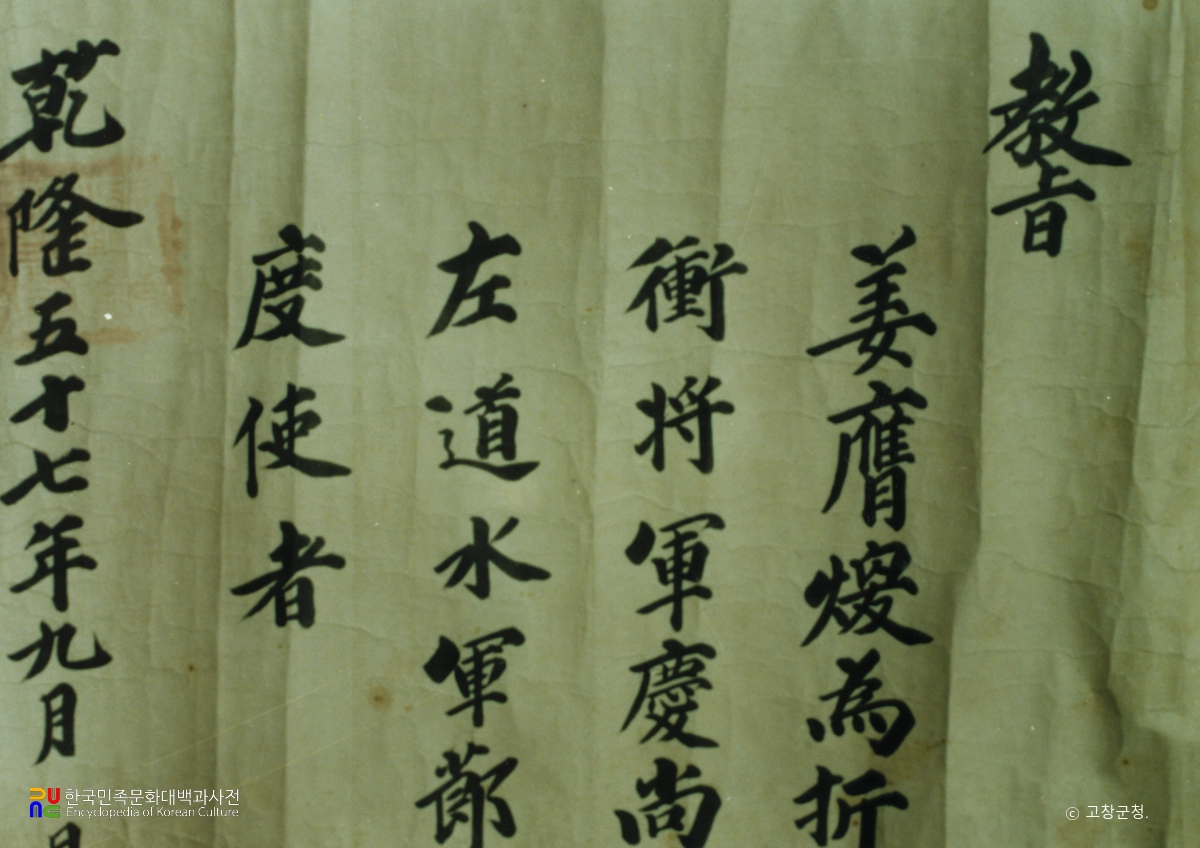 教旨
姜膺煥為折
衝将軍慶尚
左道水軍節
度使者
乾隆五十七年九月日
한국민족문화대백과사전
Encyclopedia of Korean Culture
© 고창군청.